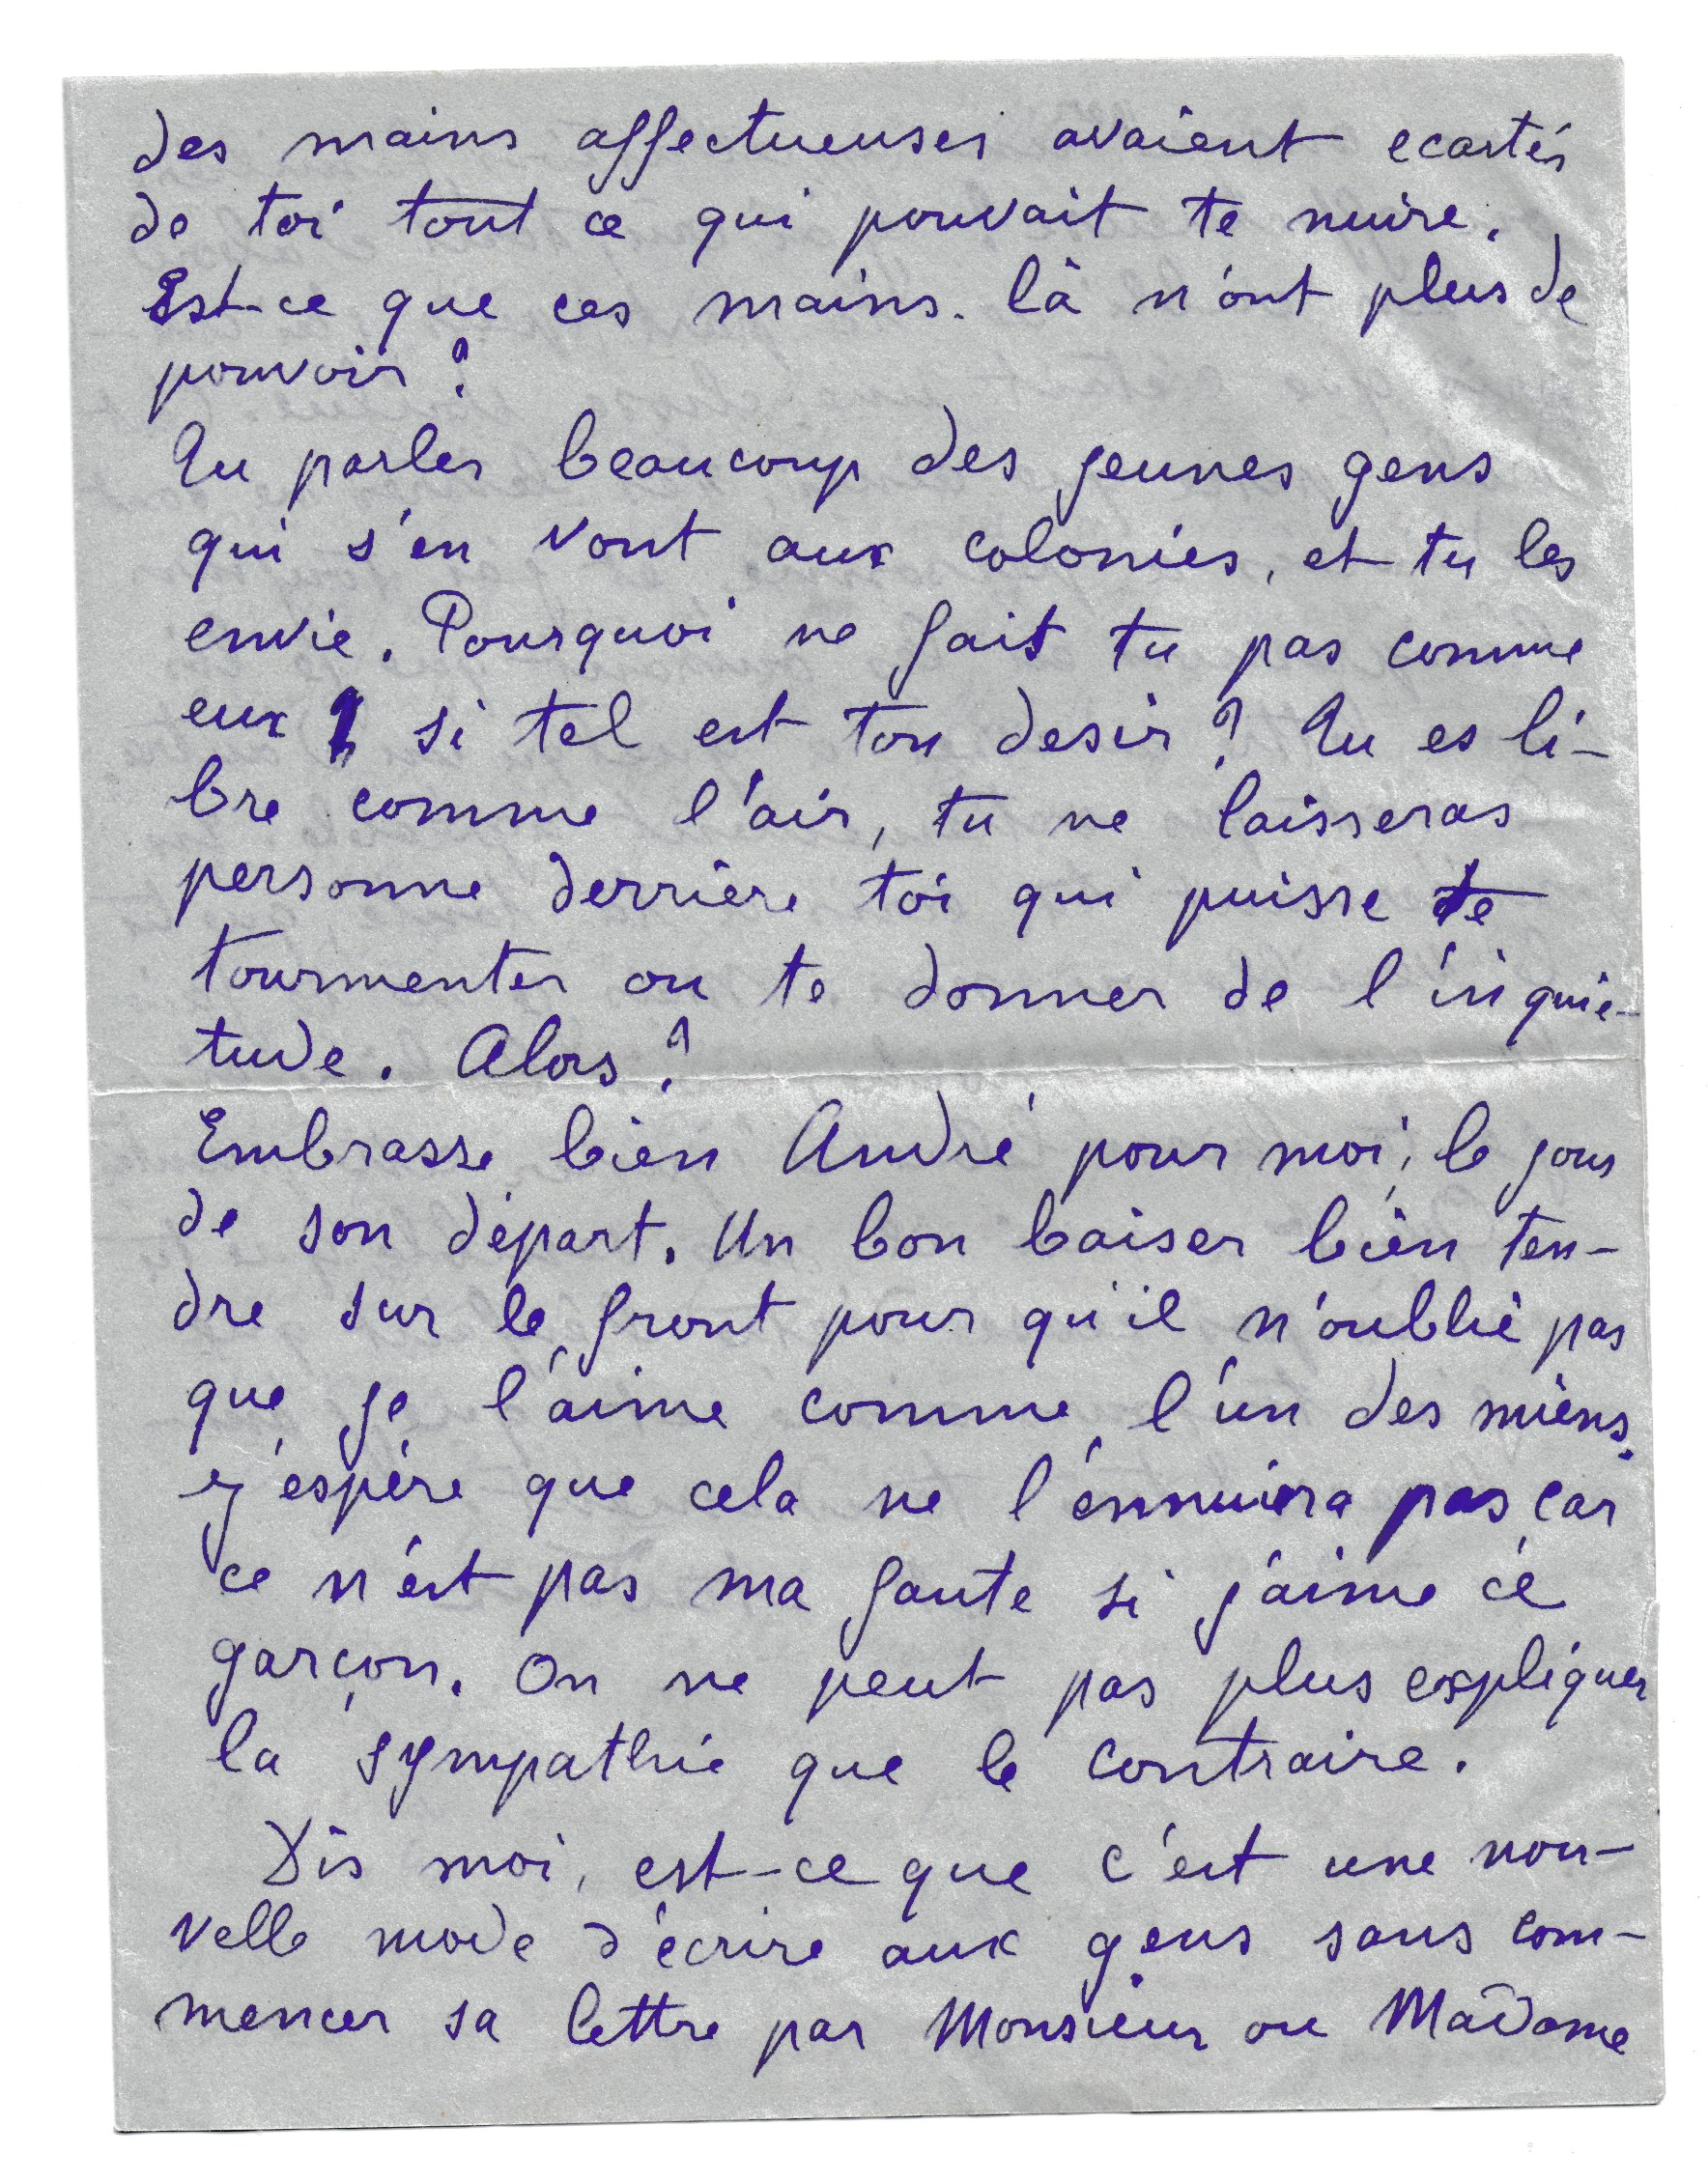 des mains affectueuses avaient ecartés
de toi tout ce qui pouvait te nuire.
Est-ce que ces mains-là n'ont plus de
pouvoir ?
Tu parles beaucoup des jeunes gens
qui s'en vont aux colonies, et tu les
envie. Pourquoi ne fait tu pas comme
eux, si tel est ton desir ? Tu es li-
bre comme l'air, tu ne laisseras
personne derrière toi qui puisse te
tourmenter ou te donner de l'inquié-
tude. Alors ?
Embrasse bien André pour moi, le jour
de son départ. Un bon baiser bien ten-
dre sur le front pour qu'il n'oublie pas
que je l'aime comme l'un des miens.
J'espère que cela ne l'ennuiera pas car
ce n'est pas ma faute si j'aime ce
garçon. On ne peut pas plus expliquer
la sympathie que le contraire.
Dis moi, est-ce que c'est une nou-
velle mode d'écrire aux gens sans com-
mencer sa lettre par Monsieur ou Madame